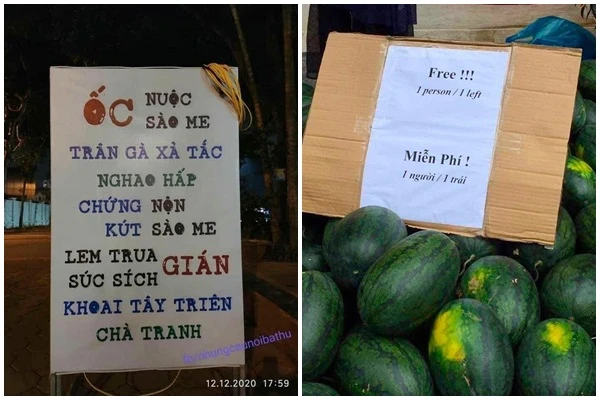 ỐC NUỘC
SÀO ME
TRÂN GÀ XẢ TẮC
NGHAO HẤP
CHỨNG NỘN
KÚT SÀO ME
LEM TRUA
SÚC SÍCH GIÁN
KHOAI TÂY TRIÊN
CHÀ TRANH
fb/nhungcaunoibathu
12.12.2020 17:59
Free !!!
1 person / 1 left
Miễn Phí !
1 người / 1 trái